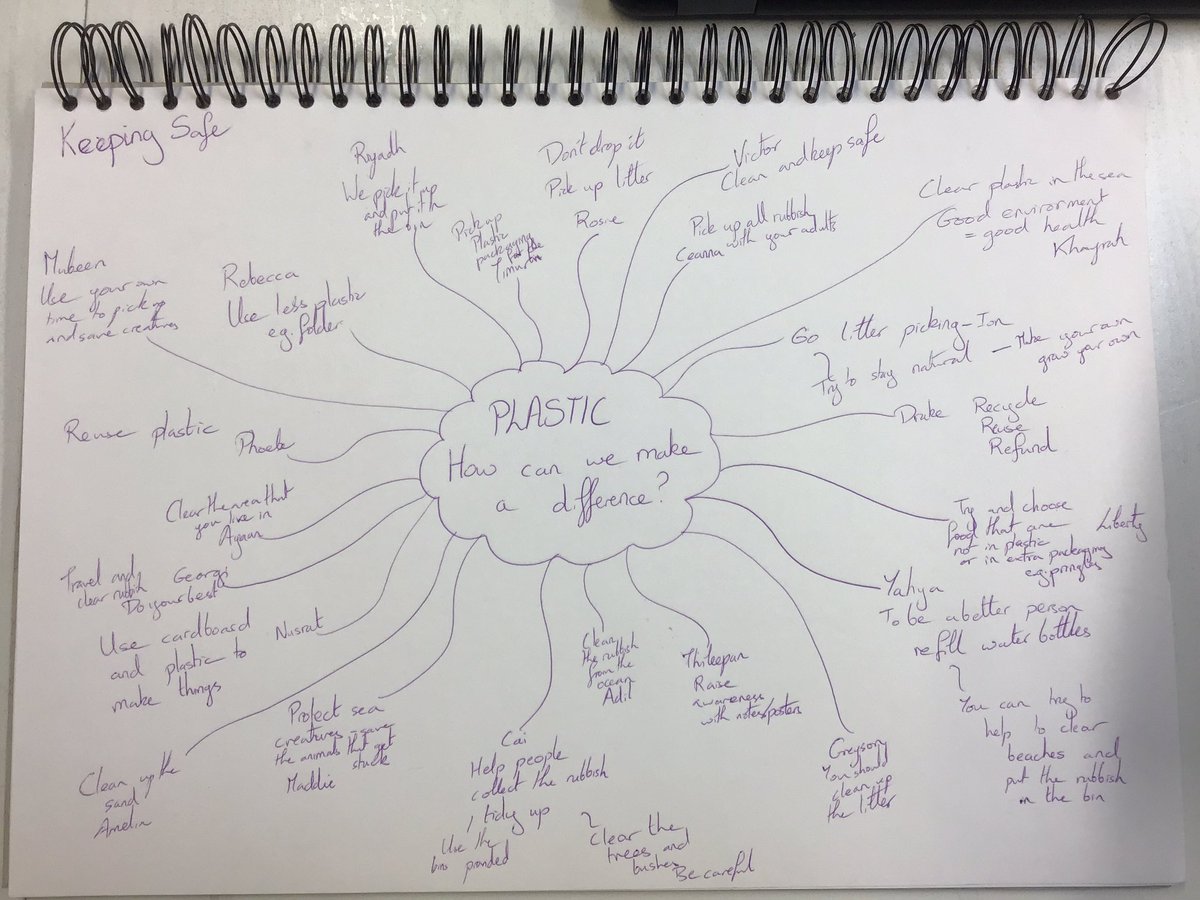 Keeping Safe
Riyadh
We pick it up
and put it in
the bin
Pick up
Plastic
packaging
Don't drop it
Pick up litter
Rosie
Victor
Clean and keep safe
Pick up all rubbish
Ceanna with your adults
Clear plastic in the sea
Good environment
= good health
Khayrah
Mubeen
Use your own
time to pick up
and save creatures
Rebecca
Use less plastic
e.g. folder
Go litter picking - Ion
Try to stay natural - Make your own
grow your own
PLASTIC
How can we make
a difference?
Reuse plastic Phoebe
Drake Recycle
Reuse
Refund
Clear the area that
you live in
Ayaan
Try and choose
food that are Liberty
not in plastic
or in extra packaging
e.g. pringles
Travel and Georgi
clear rubbish Do your best
Yahya
To be a better person
refill water bottles
You can try to
help to clear
beaches and
put the rubbish
in the bin
Use cardboard Nusrat
and plastic to
make things
Clean
the rubbish
from the
ocean
Adil
Thileepan
Raise
awareness
with notes/posters
Protect sea
creatures - save
the animals that get
stuck
Maddie
Clean up the
sand
Amelia
Cai
Help people
collect the rubbish
tidy up
Use the
bins provided
Clear the
trees and
bushes
Be careful
Greyson
You should
clean up
the litter